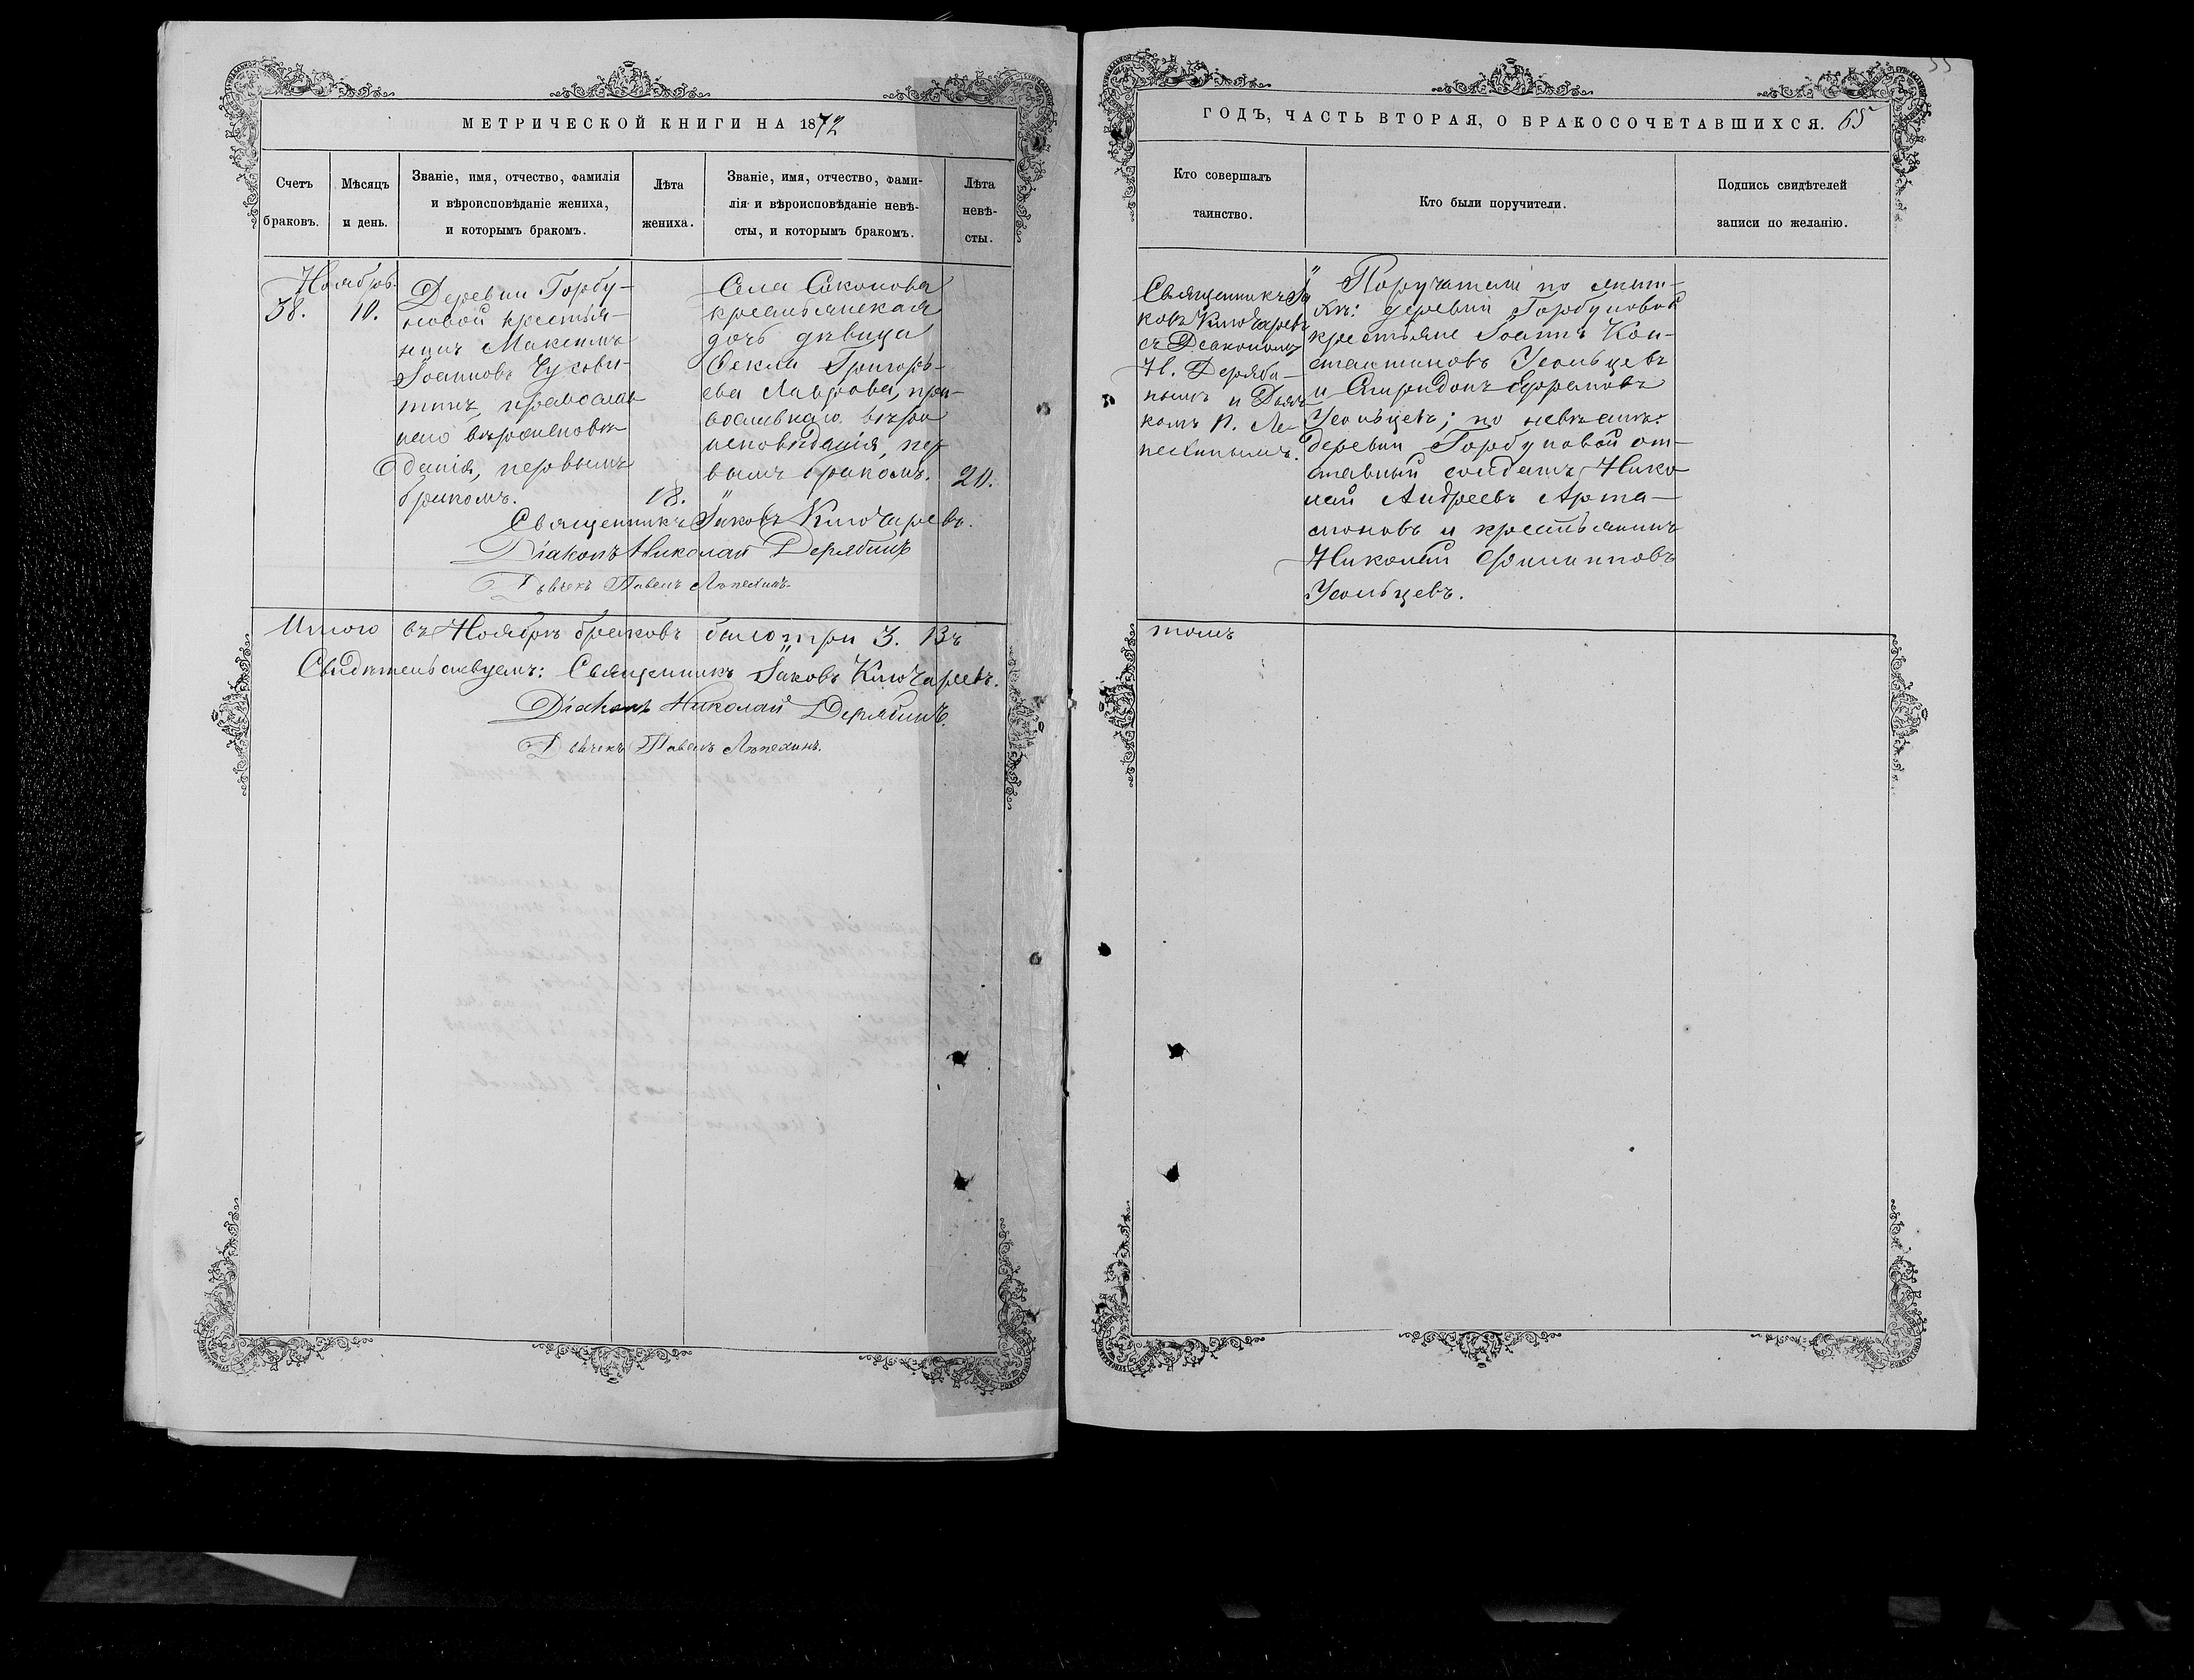 МЕТРИЧЕСКОЙ КНИГИ НА 1872
Счетъ браковъ.
Мѣсяцъ и день.
Званіе, имя, отчество, фамилія
и вѣроисповѣданіе жениха,
и которымъ бракомъ.
Лѣта жениха.
Званіе, имя, отчество, фами-
лія и вѣроисповѣданіе невѣ-
сты, и которымъ бракомъ.
Лѣта невѣ-
сты.
Ноябрь
38.
10.
Деревни Горбу-
новой крестья-
нинъ Максимъ
Іоанновъ Чусови-
тинъ, православ
наго вѣроисповѣ-
данія, первымъ
бракомъ.
18.
Села Соколова
крестьянская
дочь дѣвица
Ѳекла Григорь-
ева Лаврова, пра-
вославнаго вѣро
исповѣданія, пер
вымъ бракомъ.
20.
Священникъ Іаковъ Ключаревъ.
Діаконъ Николай Дерябинъ
Дьячекъ Павелъ Лепехинъ.
Итого въ Ноябрѣ браковъ было три 3. Въ
Свидѣтельствуемъ: Священникъ Іаковъ Ключаревъ.
Діаконъ Николай Дерябинъ.
Дьячекъ Павелъ Лепехинъ.
ГОДЪ, ЧАСТЬ ВТОРАЯ, О БРАКОСОЧЕТАВШИХСЯ. 65
Кто совершалъ
таинство.
Кто были поручители.
Подпись свидѣтелей
записи по желанію.
Священникъ Іа
ковъ Ключаревъ
съ Діакономъ
Н. Деряби-
нымъ и Дьяч
комъ П. Ле-
пехинымъ.
Поручатели по жени-
хѣ: деревни Горбуновой
крестьяне Іоаннъ Кон-
стантиновъ Усольцевъ
и Спиридонъ
Усольцевъ; по невѣстѣ:
деревни Горбуновой от-
ставный солдатъ Нико
лай Андреевъ Арта-
моновъ и крестьянинъ
Николай Филипповъ
Усольцевъ.
томъ